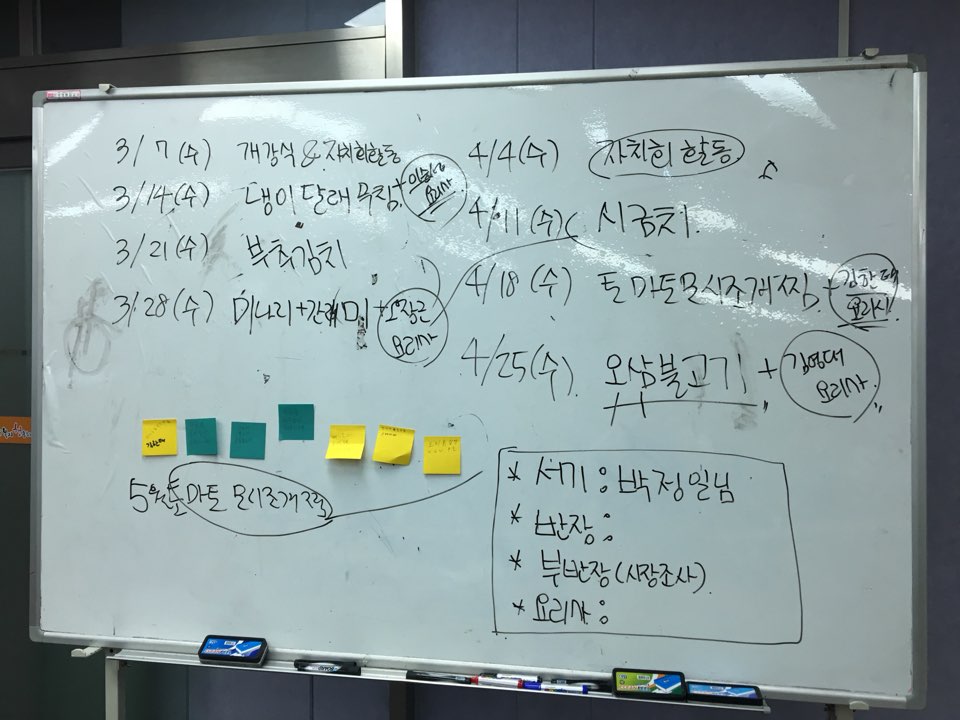 3/7(수) 개강식 & 자치회활동
3/14(수) 냉이달래무침+
요리사
3/21(수) 부추김치
3/28(수) 미나리+간재미+오장근
요리사
4/4(수) 자치회 활동
4/11(수) 시금치
4/18(수) 토마토모시조개찜+김한택
요리사
4/25(수) 오삼불고기 + 김영대
요리사
5월 토마토 모시조개찜
* 서기 : 박정일님
* 반장 :
* 부반장(시장조사)
* 요리사 :